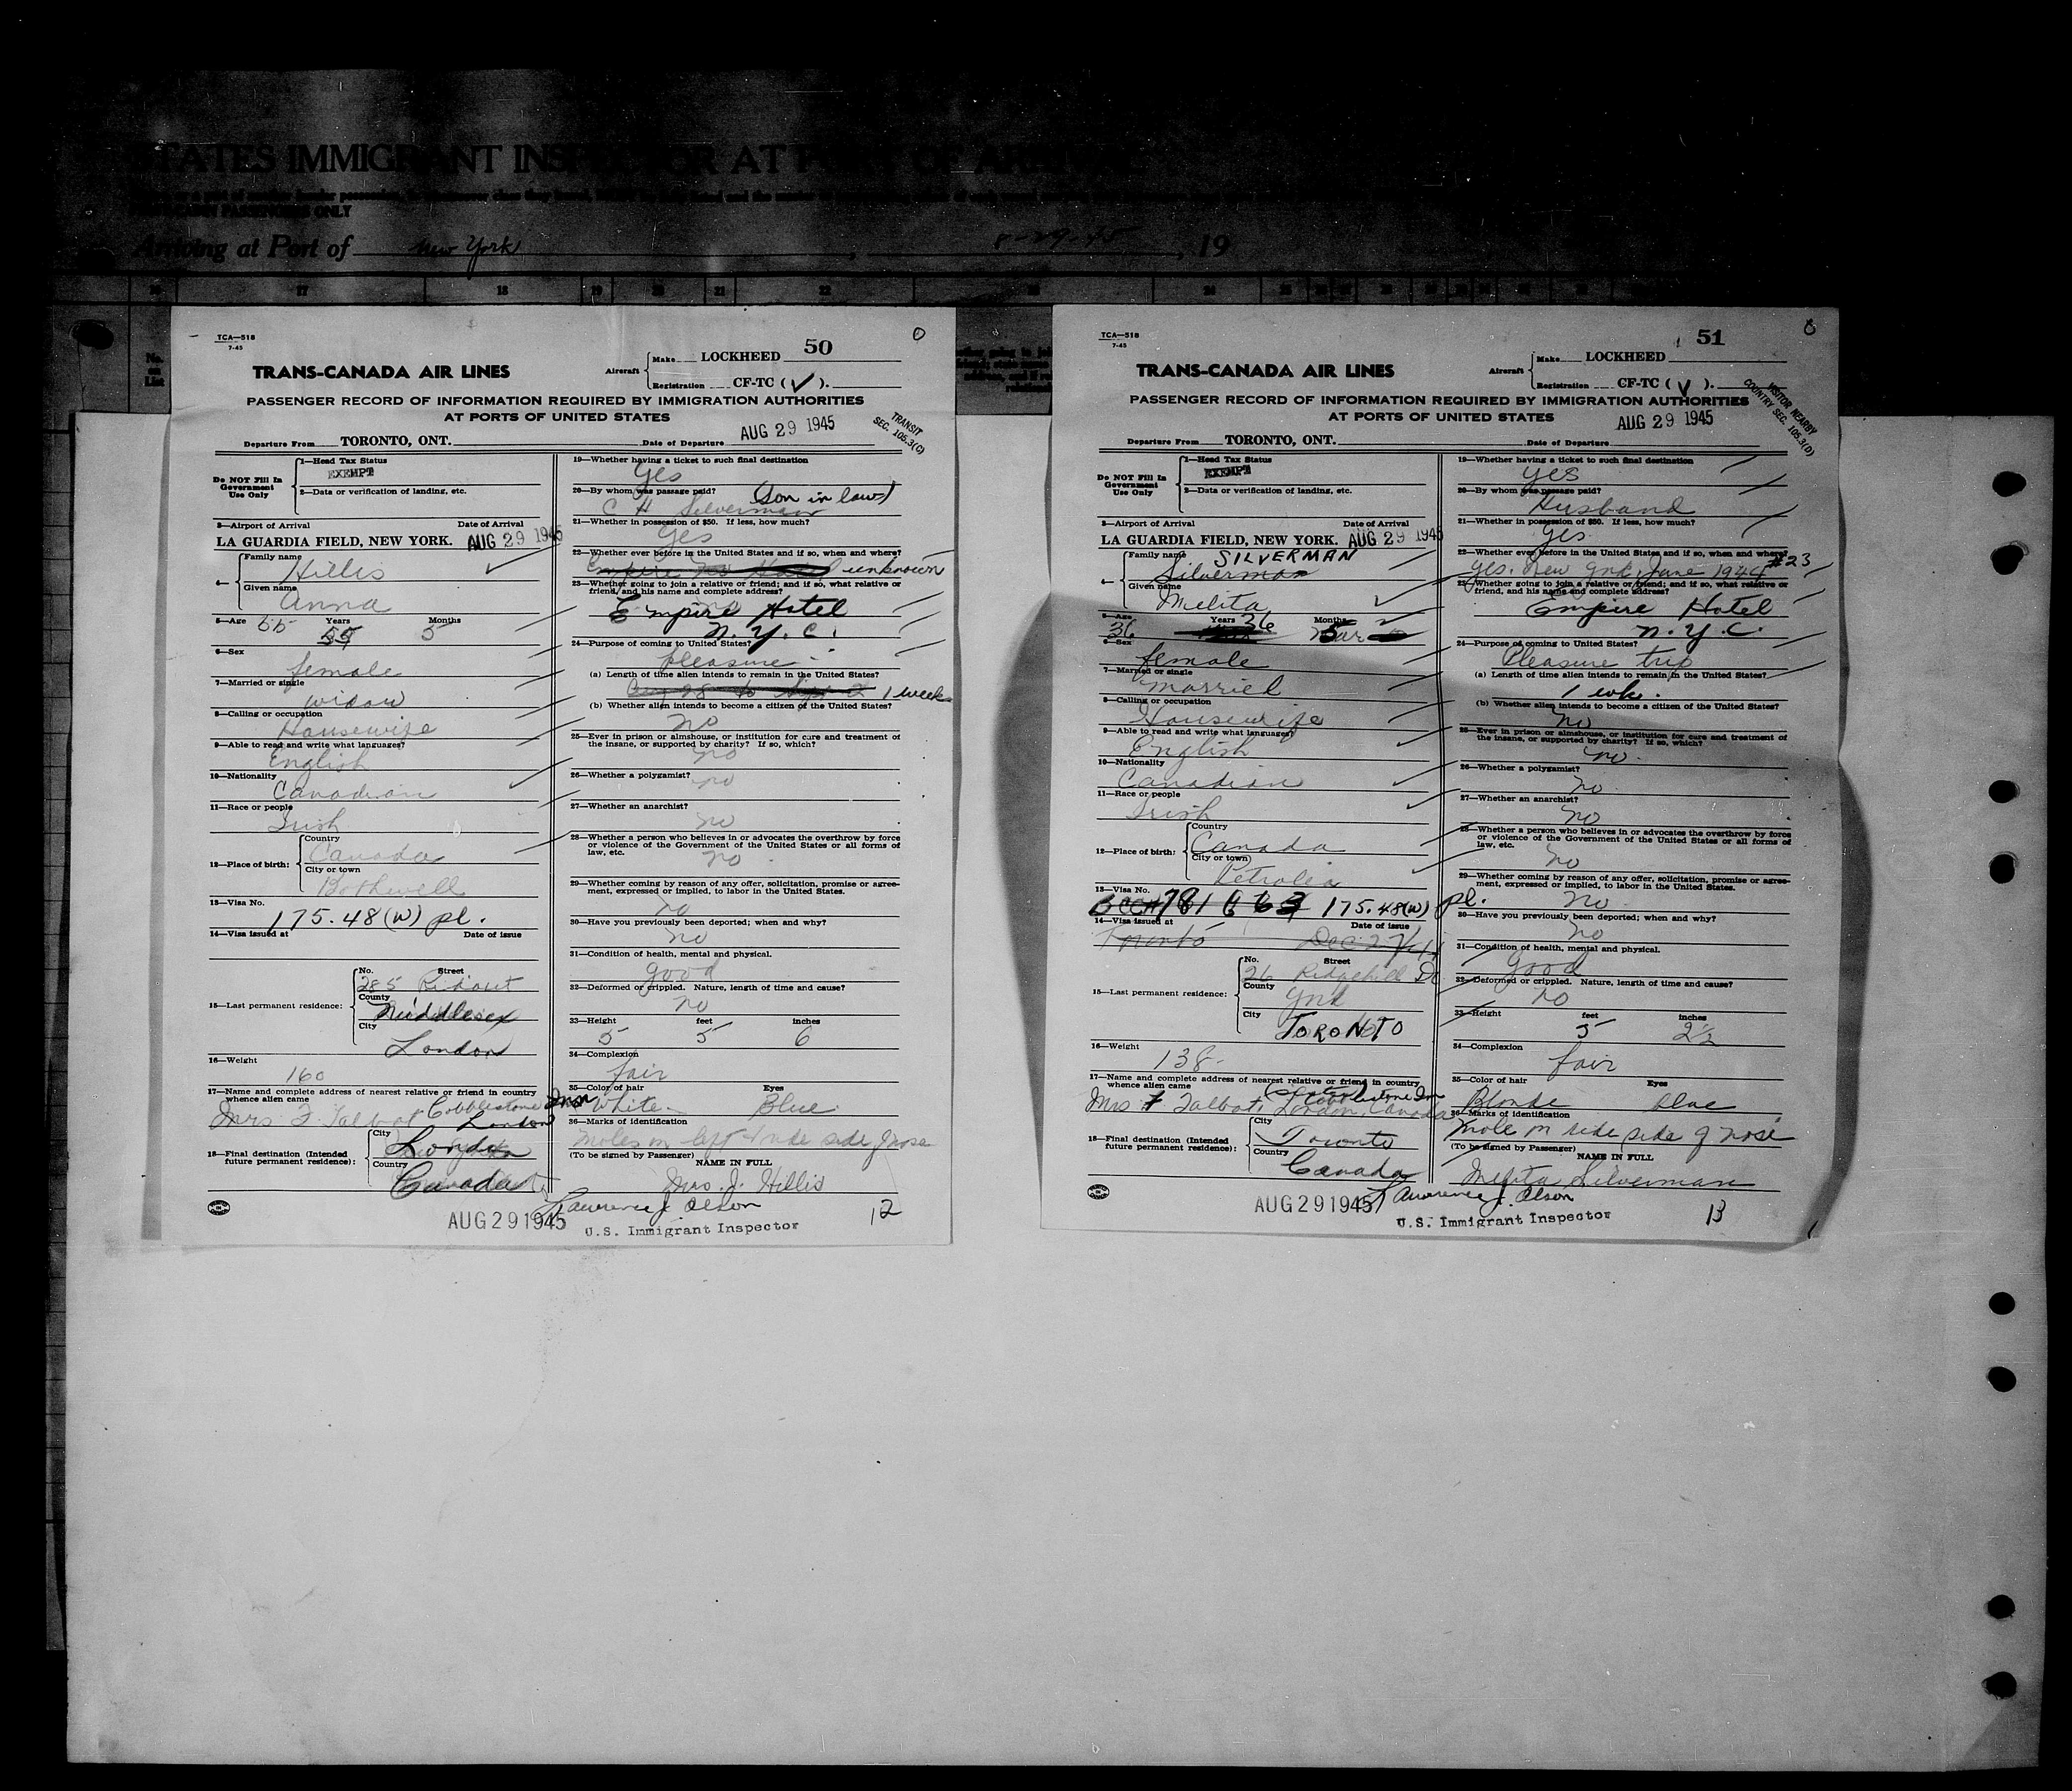 STATES IMMIGRANT INSPECTOR AT PORT OF ARRIVAL
PASSENGERS ONLY
Arriving at Port of New York, 8-29-45, 19
16 17 18 19 20 21 22 23 24
No. on List
TCA—518
7-45
50
0
Aircraft
Make LOCKHEED
Registration CF-TC (V).
TRANS-CANADA AIR LINES
PASSENGER RECORD OF INFORMATION REQUIRED BY IMMIGRATION AUTHORITIES
AT PORTS OF UNITED STATES
TRANSIT
SEC. 105.3(C)
Departure From TORONTO, ONT. Date of Departure AUG 29 1945
Do NOT Fill In Government Use Only
1—Head Tax Status
EXEMPT
2—Data or verification of landing, etc.
3—Airport of Arrival Date of Arrival
LA GUARDIA FIELD, NEW YORK. AUG 29 1945
4—
Family name
Hillis
Given name
Anna
5—Age Years Months
55 55 5
6—Sex
female
7—Married or single
widow
8—Calling or occupation
Housewife
9—Able to read and write what languages?
English
10—Nationality
Canadian
11—Race or people
Irish
12—Place of birth:
Country
Canada
City or town
Bothwell
13—Visa No.
175.48(W) pl.
14—Visa issued at Date of issue
15—Last permanent residence:
No. Street
285 Ridout
County
Middlesex
City
London
16—Weight
160
17—Name and complete address of nearest relative or friend in country
whence alien came
Mrs F. Talbot Cobblestone Inn
London
18—Final destination (Intended
future permanent residence):
City
London
Country
Canada
19—Whether having a ticket to such final destination
Yes
20—By whom was passage paid? (Son in law)
C H Silverman
21—Whether in possession of $50. If less, how much?
Yes
22—Whether ever before in the United States and if so, when and where?
unknown
23—Whether going to join a relative or friend; and if so, what relative or
friend, and his name and complete address?
Empire Hotel
N.Y.C.
24—Purpose of coming to United States?
pleasure
(a) Length of time alien intends to remain in the United States?
Aug 28 to Sept 2 1 week
(b) Whether alien intends to become a citizen of the United States?
no
25—Ever in prison or almshouse, or institution for cure and treatment of
the insane, or supported by charity? If so, which?
no
26—Whether a polygamist?
no
27—Whether an anarchist?
no
28—Whether a person who believes in or advocates the overthrow by force
or violence of the Government of the United States or all forms of
law, etc.
no
29—Whether coming by reason of any offer, solicitation, promise or agree-
ment, expressed or implied, to labor in the United States.
no
30—Have you previously been deported; when and why?
no
31—Condition of health, mental and physical.
good
32—Deformed or crippled. Nature, length of time and cause?
no
33—Height feet inches
5 5 6
34—Complexion
fair
35—Color of hair Eyes
White Blue
36—Marks of identification
moles on left side of nose
(To be signed by Passenger)
NAME IN FULL
Mrs. J. Hillis
AUG 29 1945
Lawrence J. Olson
U.S. Immigrant Inspector
12
TCA—518
7-45
51
Aircraft
Make LOCKHEED
Registration CF-TC (V).
TRANS-CANADA AIR LINES
PASSENGER RECORD OF INFORMATION REQUIRED BY IMMIGRATION AUTHORITIES
AT PORTS OF UNITED STATES
VISITOR NEARBY
COUNTRY SEC. 105.3(D)
Departure From TORONTO, ONT. Date of Departure AUG 29 1945
Do NOT Fill In Government Use Only
1—Head Tax Status
EXEMPT
2—Data or verification of landing, etc.
3—Airport of Arrival Date of Arrival
LA GUARDIA FIELD, NEW YORK. AUG 29 1945
4—
Family name SILVERMAN
Silverman
Given name
Melita
5—Age Years Months
36 36 5
6—Sex
female
7—Married or single
married
8—Calling or occupation
Housewife
9—Able to read and write what languages?
English
10—Nationality
Canadian
11—Race or people
Irish
12—Place of birth:
Country
Canada
City or town
Petrolia
13—Visa No.
175.48(W) pl.
14—Visa issued at Date of issue
Toronto Dec 27
15—Last permanent residence:
No. Street
26 Ridgehill Dr
County
York
City
TORONTO
16—Weight
138
17—Name and complete address of nearest relative or friend in country
whence alien came
Mrs F Talbot, Cobblestone Inn
London, Canada
18—Final destination (Intended
future permanent residence):
City
Toronto
Country
Canada
19—Whether having a ticket to such final destination
yes
20—By whom was passage paid?
Husband
21—Whether in possession of $50. If less, how much?
Yes
22—Whether ever before in the United States and if so, when and where?
Yes. New York June 1944 #23
23—Whether going to join a relative or friend; and if so, what relative or
friend, and his name and complete address?
Empire Hotel
N.Y.C.
24—Purpose of coming to United States?
Pleasure trip
(a) Length of time alien intends to remain in the United States?
1 wk.
(b) Whether alien intends to become a citizen of the United States?
no
25—Ever in prison or almshouse, or institution for cure and treatment of
the insane, or supported by charity? If so, which?
no
26—Whether a polygamist?
no
27—Whether an anarchist?
no
28—Whether a person who believes in or advocates the overthrow by force
or violence of the Government of the United States or all forms of
law, etc.
no
29—Whether coming by reason of any offer, solicitation, promise or agree-
ment, expressed or implied, to labor in the United States.
no
30—Have you previously been deported; when and why?
no
31—Condition of health, mental and physical.
good
32—Deformed or crippled. Nature, length of time and cause?
no
33—Height feet inches
5 2½
34—Complexion
fair
35—Color of hair Eyes
Blonde blue
36—Marks of identification
mole on side of nose
(To be signed by Passenger)
NAME IN FULL
Melita Silverman
AUG 29 1945
Lawrence J. Olson
U.S. Immigrant Inspector
13